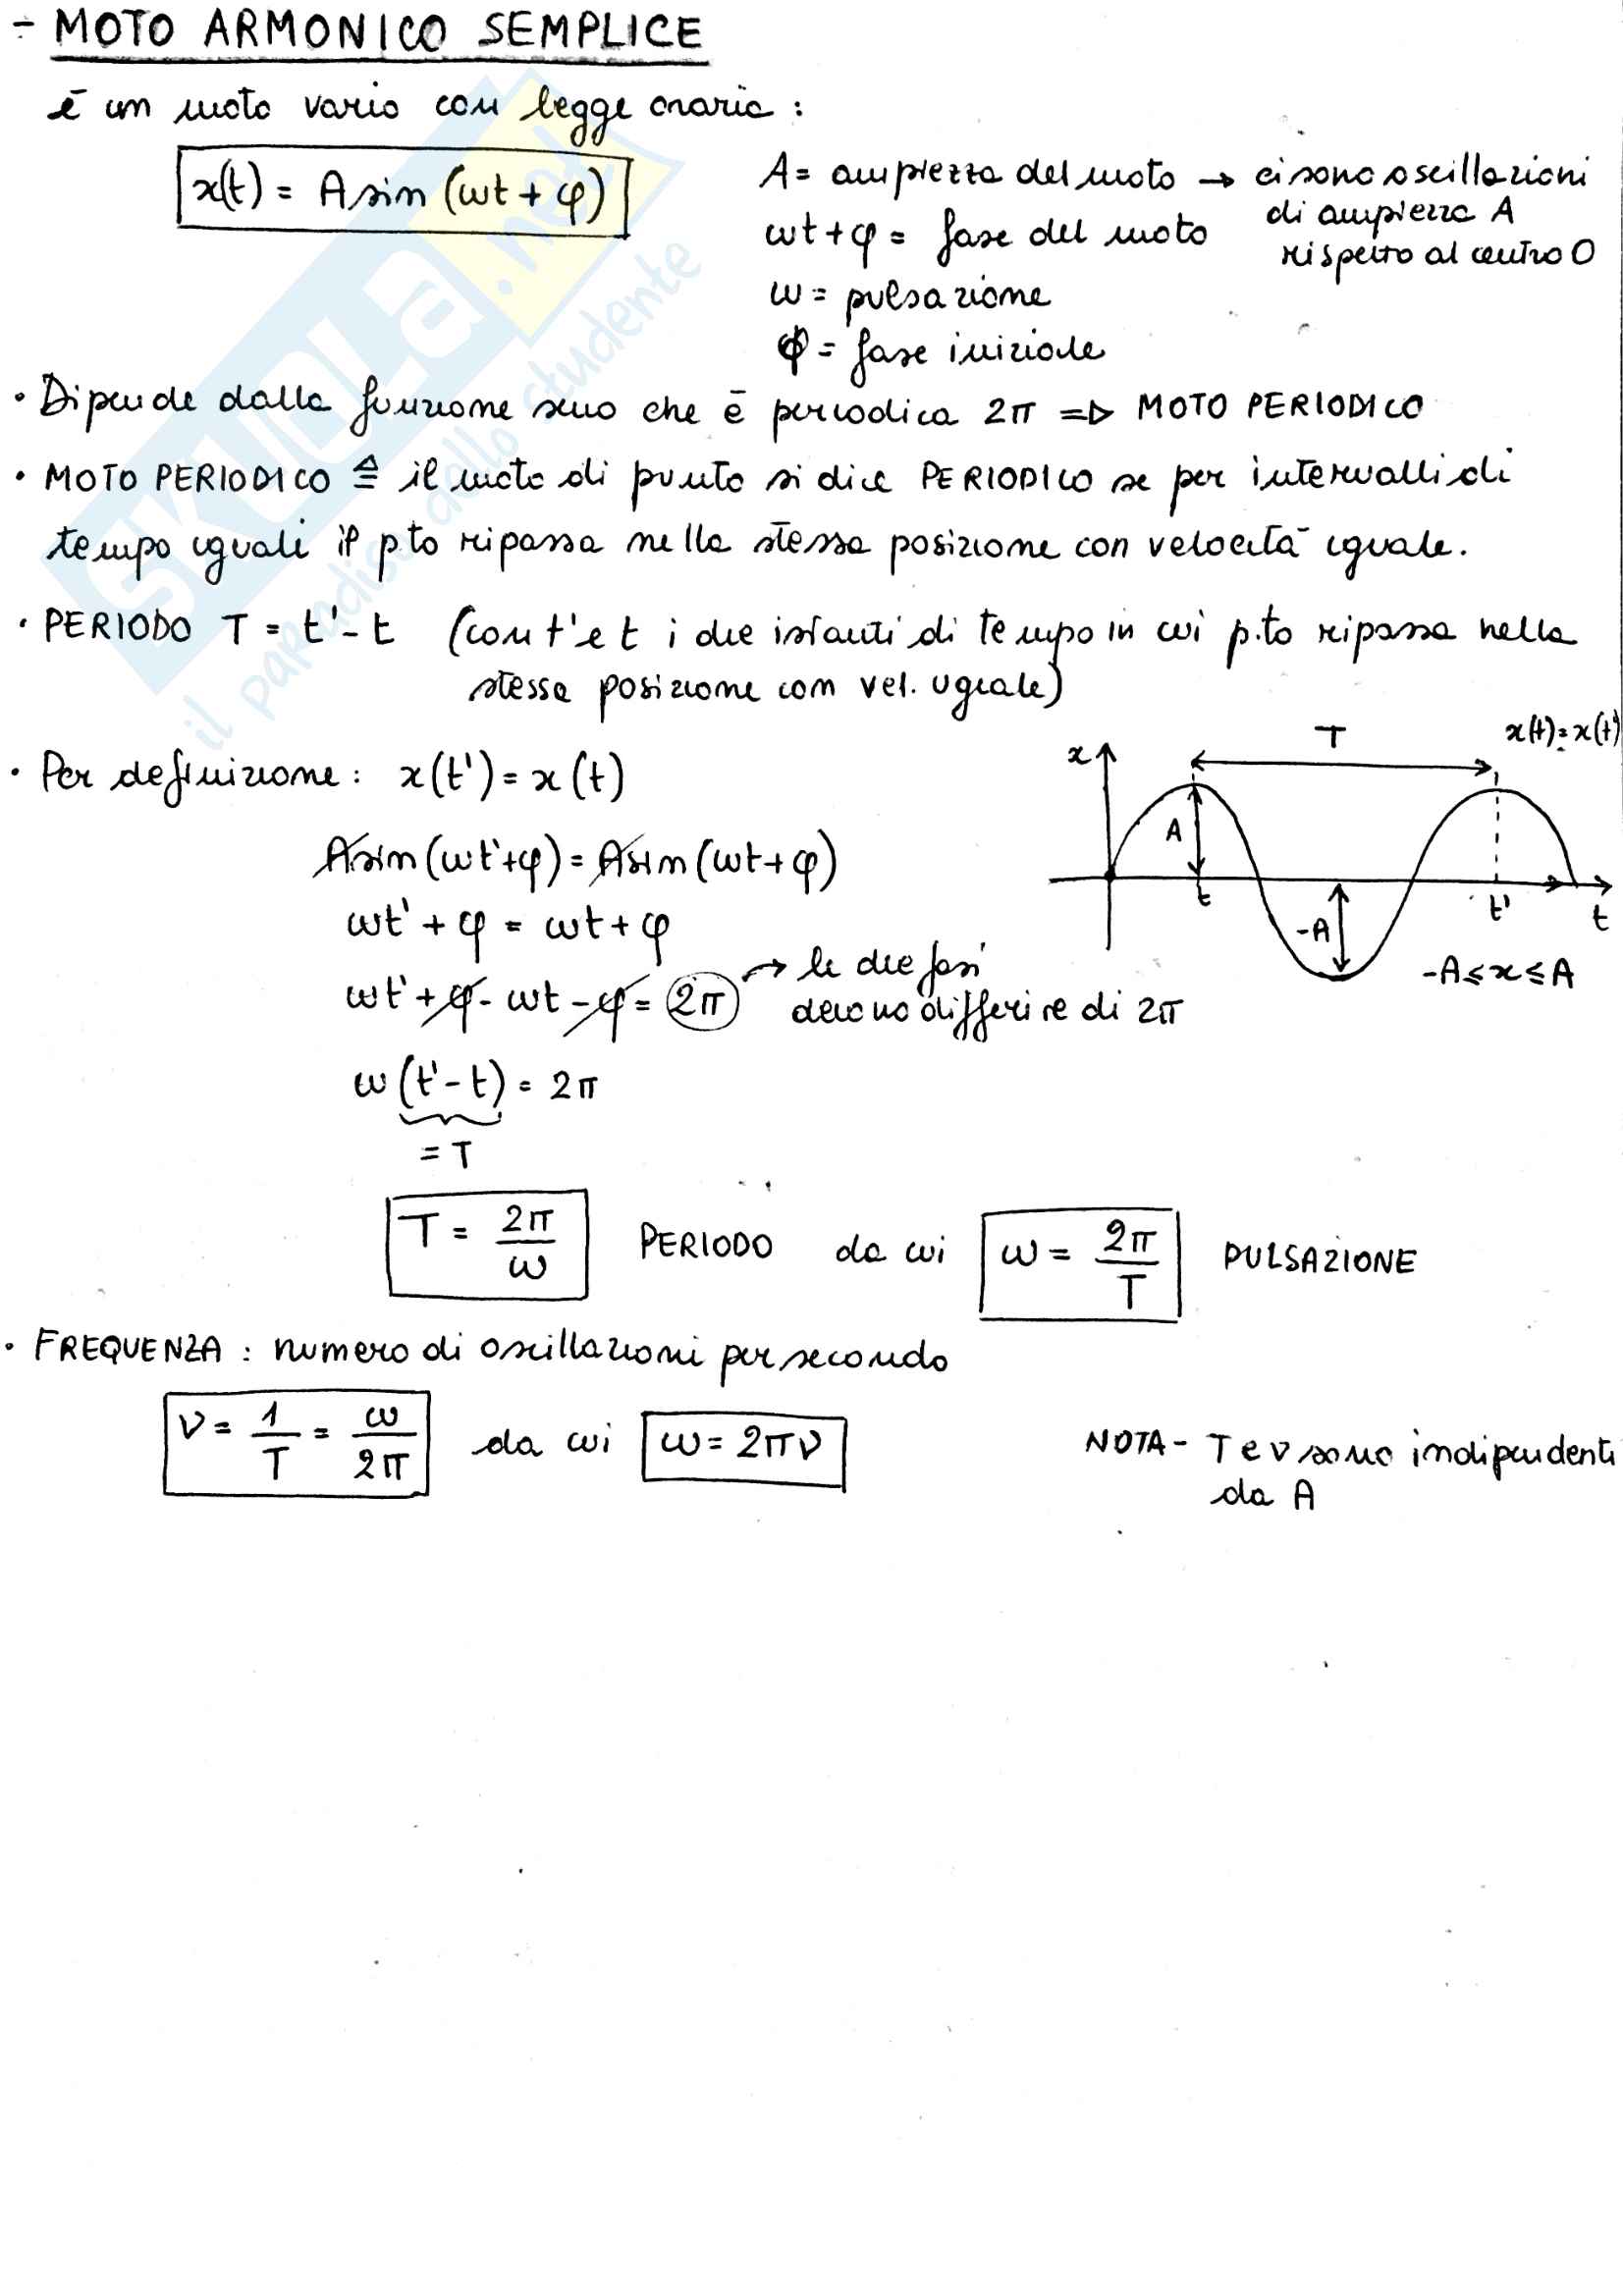 - MOTO ARMONICO SEMPLICE
è un moto vario con legge oraria :
x(t) = A sin (ωt + φ)
A = ampiezza del moto → ci sono oscillazioni
di ampiezza A
rispetto al centro O
ωt + φ = fase del moto
ω = pulsazione
φ = fase iniziale
• Dipende dalla funzione seno che è periodica 2π => MOTO PERIODICO
• MOTO PERIODICO ≙ il moto di punto si dice PERIODICO se per intervalli di
tempo uguali il p.to ripassa nella stessa posizione con velocità uguale.
• PERIODO T = t' - t (con t' e t i due istanti di tempo in cui p.to ripassa nella
stessa posizione con vel. uguale)
• Per definizione : x(t') = x(t)
A sin (ωt' + φ) = A sin (ωt + φ)
ωt' + φ = ωt + φ
ωt' + φ - ωt - φ = 2π → le due fasi
devono differire di 2π
ω (t' - t) = 2π
= T
x
T
x(t) = x(t')
A
t
-A
t'
t
-A ≤ x ≤ A
T = 2π/ω PERIODO da cui ω = 2π/T PULSAZIONE
• FREQUENZA : numero di oscillazioni per secondo
ν = 1/T = ω/2π da cui ω = 2πν
NOTA - T e ν sono indipendenti
da A
SKUOLA.net
il paradiso dello studente